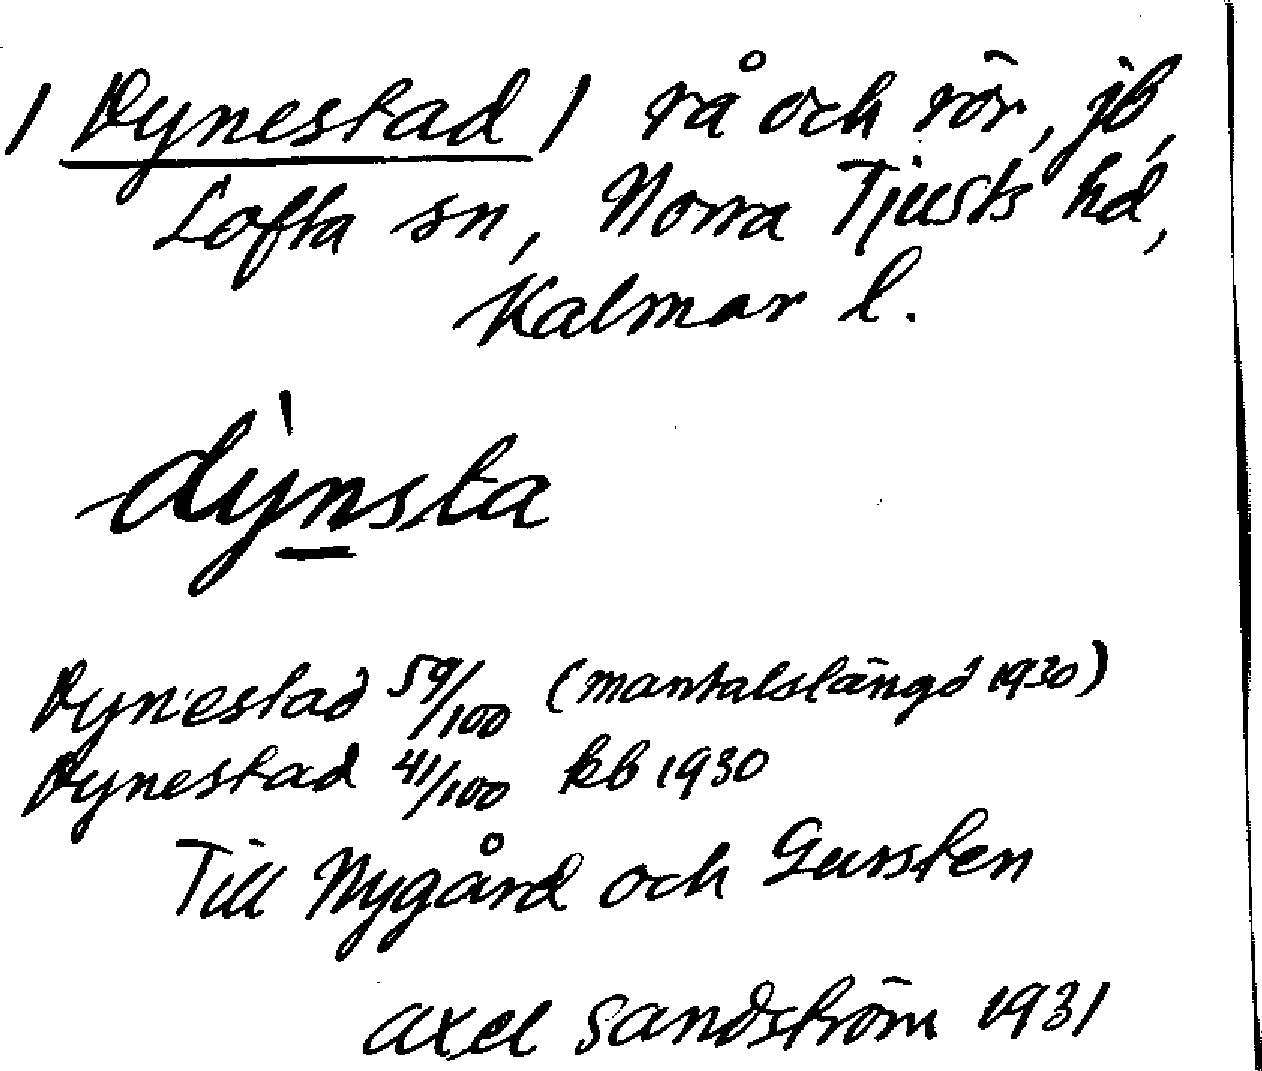 / Dynestad / rå och rör, jb,
Lofta sn, Norra Tjusts hd,
Kalmar l.
dỳnsta
Dynestad 59/100 (mantalslängd 1930)
Dynestad 41/100 kb 1930
Till Nygård och Gursten
Axel Sandström 1931